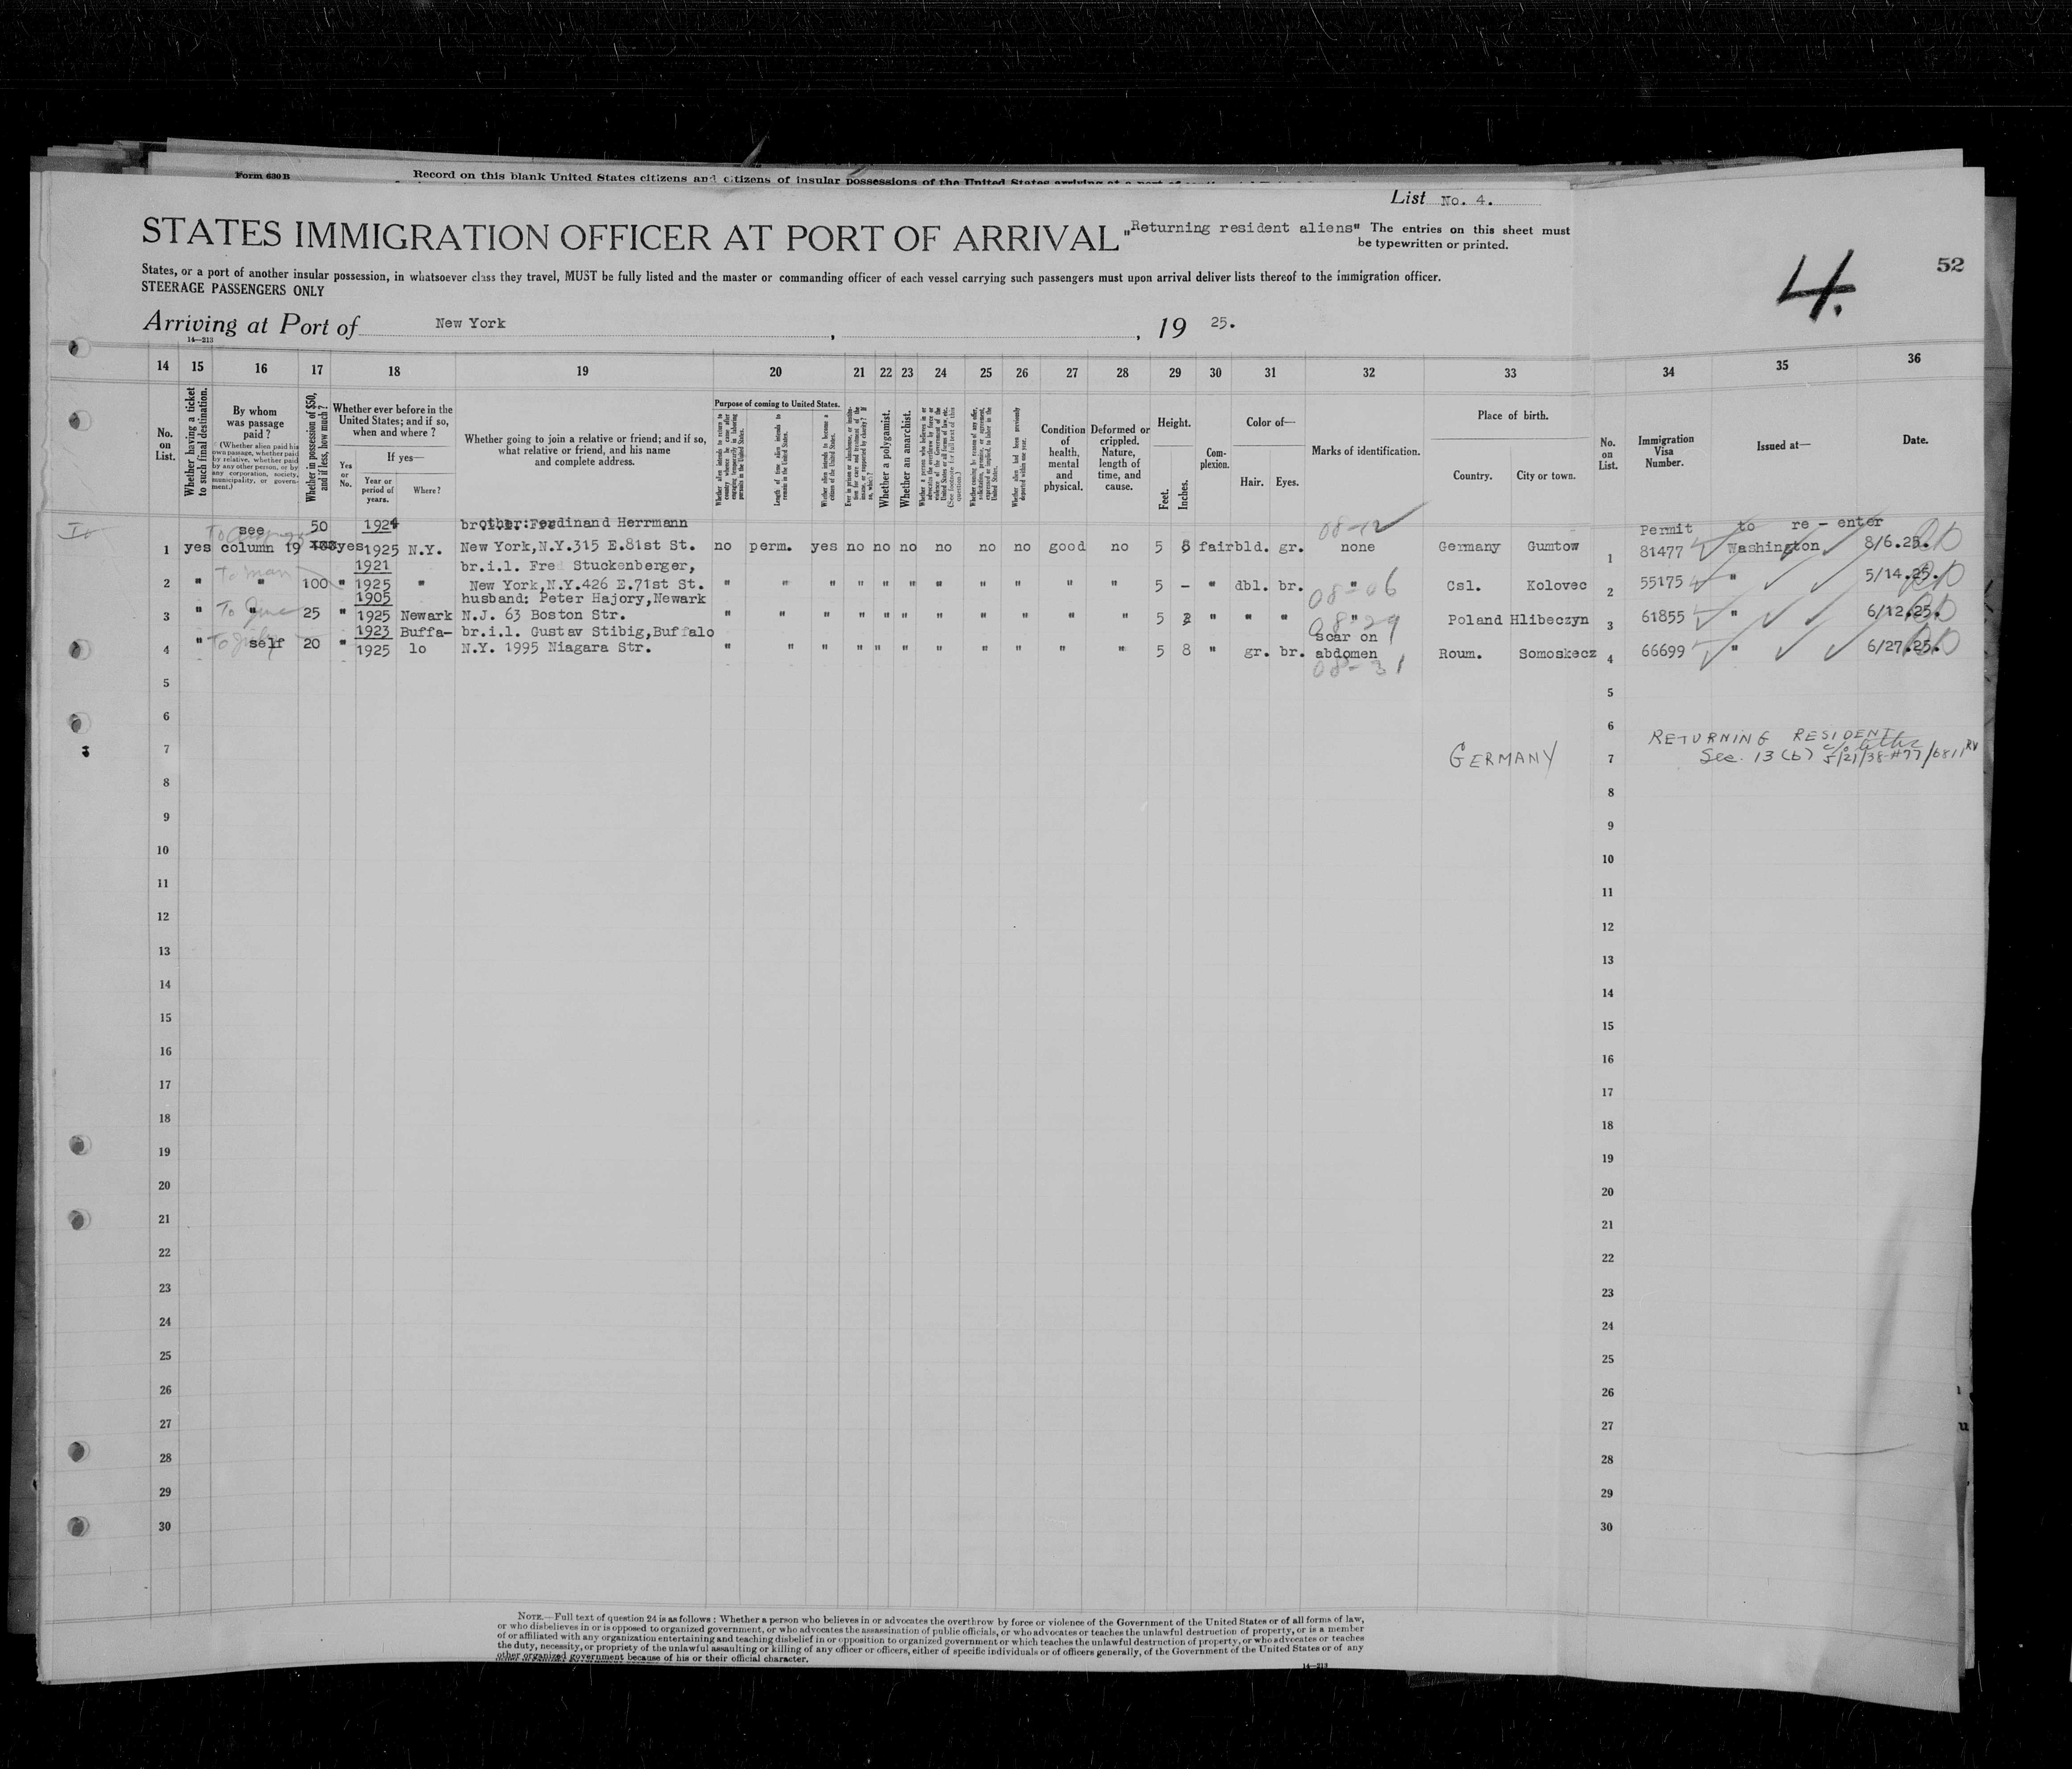 Form 630 B
Record on this blank United States citizens and citizens of insular possessions of the United States arriving at a port of
List No. 4.
STATES IMMIGRATION OFFICER AT PORT OF ARRIVAL „Returning resident aliens" The entries on this sheet must
be typewritten or printed.
States, or a port of another insular possession, in whatsoever class they travel, MUST be fully listed and the master or commanding officer of each vessel carrying such passengers must upon arrival deliver lists thereof to the immigration officer.
STEERAGE PASSENGERS ONLY
4.
52
Arriving at Port of New York , , 19 25.
14—213
14 15 16 17 18 19 20 21 22 23 24 25 26 27 28 29 30 31 32 33 34 35 36
No. on List.
Whether having a ticket to such final destination.
By whom was passage paid?
(Whether alien paid his own passage, whether paid by relative, whether paid by any other person, or by any corporation, society, municipality, or government.)
Whether in possession of $50, and if less, how much?
Whether ever before in the United States; and if so, when and where?
Yes or No.
If yes—
Year or period of years.
Where?
Whether going to join a relative or friend; and if so, what relative or friend, and his name and complete address.
Purpose of coming to United States.
Whether alien intends to return to country whence he came after engaging temporarily in laboring pursuits in the United States.
Length of time alien intends to remain in the United States.
Whether alien intends to become a citizen of the United States.
Ever in prison or almshouse, or institution for care and treatment of the insane, or supported by charity? If so, which?
Whether a polygamist.
Whether an anarchist.
Whether coming by reason of any offer, solicitation, promise, or agreement, expressed or implied, to labor in the United States.
Whether alien had been previously deported within one year.
Condition of health, mental and physical.
Deformed or crippled. Nature, length of time, and cause.
Height.
Feet.
Inches.
Complexion.
Color of—
Hair.
Eyes.
Marks of identification.
Place of birth.
Country.
City or town.
No. on List.
Immigration Visa Number.
Issued at—
Date.
see 50 1924 brother: Ferdinand Herrmann 08-12 Permit to re - enter
1 yes column 19 yes 1925 N.Y. New York,N.Y.315 E.81st St. no perm. yes no no no no no no good no 5 8 fair bld. gr. none Germany Gumtow 1 81477 Washington 8/6.25.
1921 br.i.l. Fred Stuckenberger,
2 " " 100 " 1925 " New York,N.Y.426 E.71st St. " " " " " " " " " " " 5 - " dbl. br. " Csl. Kolovec 2 55175 " 5/14.25.
1905 husband: Peter Hajory,Newark 08-06
3 " " 25 " 1925 Newark N.J. 63 Boston Str. " " " " " " " " " " " 5 2 " " " " Poland Hlibeczyn 3 61855 " 6/12.25.
1923 Buffa- br.i.l. Gustav Stibig,Buffalo 08-29 scar on
4 " self 20 " 1925 lo N.Y. 1995 Niagara Str. " " " " " " " " " " " 5 8 " gr. br. abdomen Roum. Somoskecz 4 66699 " 6/27.25.
08-31
5 5
6 6
RETURNING RESIDENT
7 GERMANY 7 Sec. 13 (b) 5/21/38 #77/6811 RV
8 8
9 9
10 10
11 11
12 12
13 13
14 14
15 15
16 16
17 17
18 18
19 19
20 20
21 21
22 22
23 23
24 24
25 25
26 26
27 27
28 28
29 29
30 30
NOTE.—Full text of question 24 is as follows: Whether a person who believes in or advocates the overthrow by force or violence of the Government of the United States or of all forms of law,
or who disbelieves in or is opposed to organized government, or who advocates the assassination of public officials, or who advocates or teaches the unlawful destruction of property, or is a member
of or affiliated with any organization entertaining and teaching disbelief in or opposition to organized government or which teaches the unlawful destruction of property, or who advocates or teaches
the duty, necessity, or propriety of the unlawful assaulting or killing of any officer or officers, either of specific individuals or of officers generally, of the Government of the United States or of any
other organized government because of his or their official character.
14—213